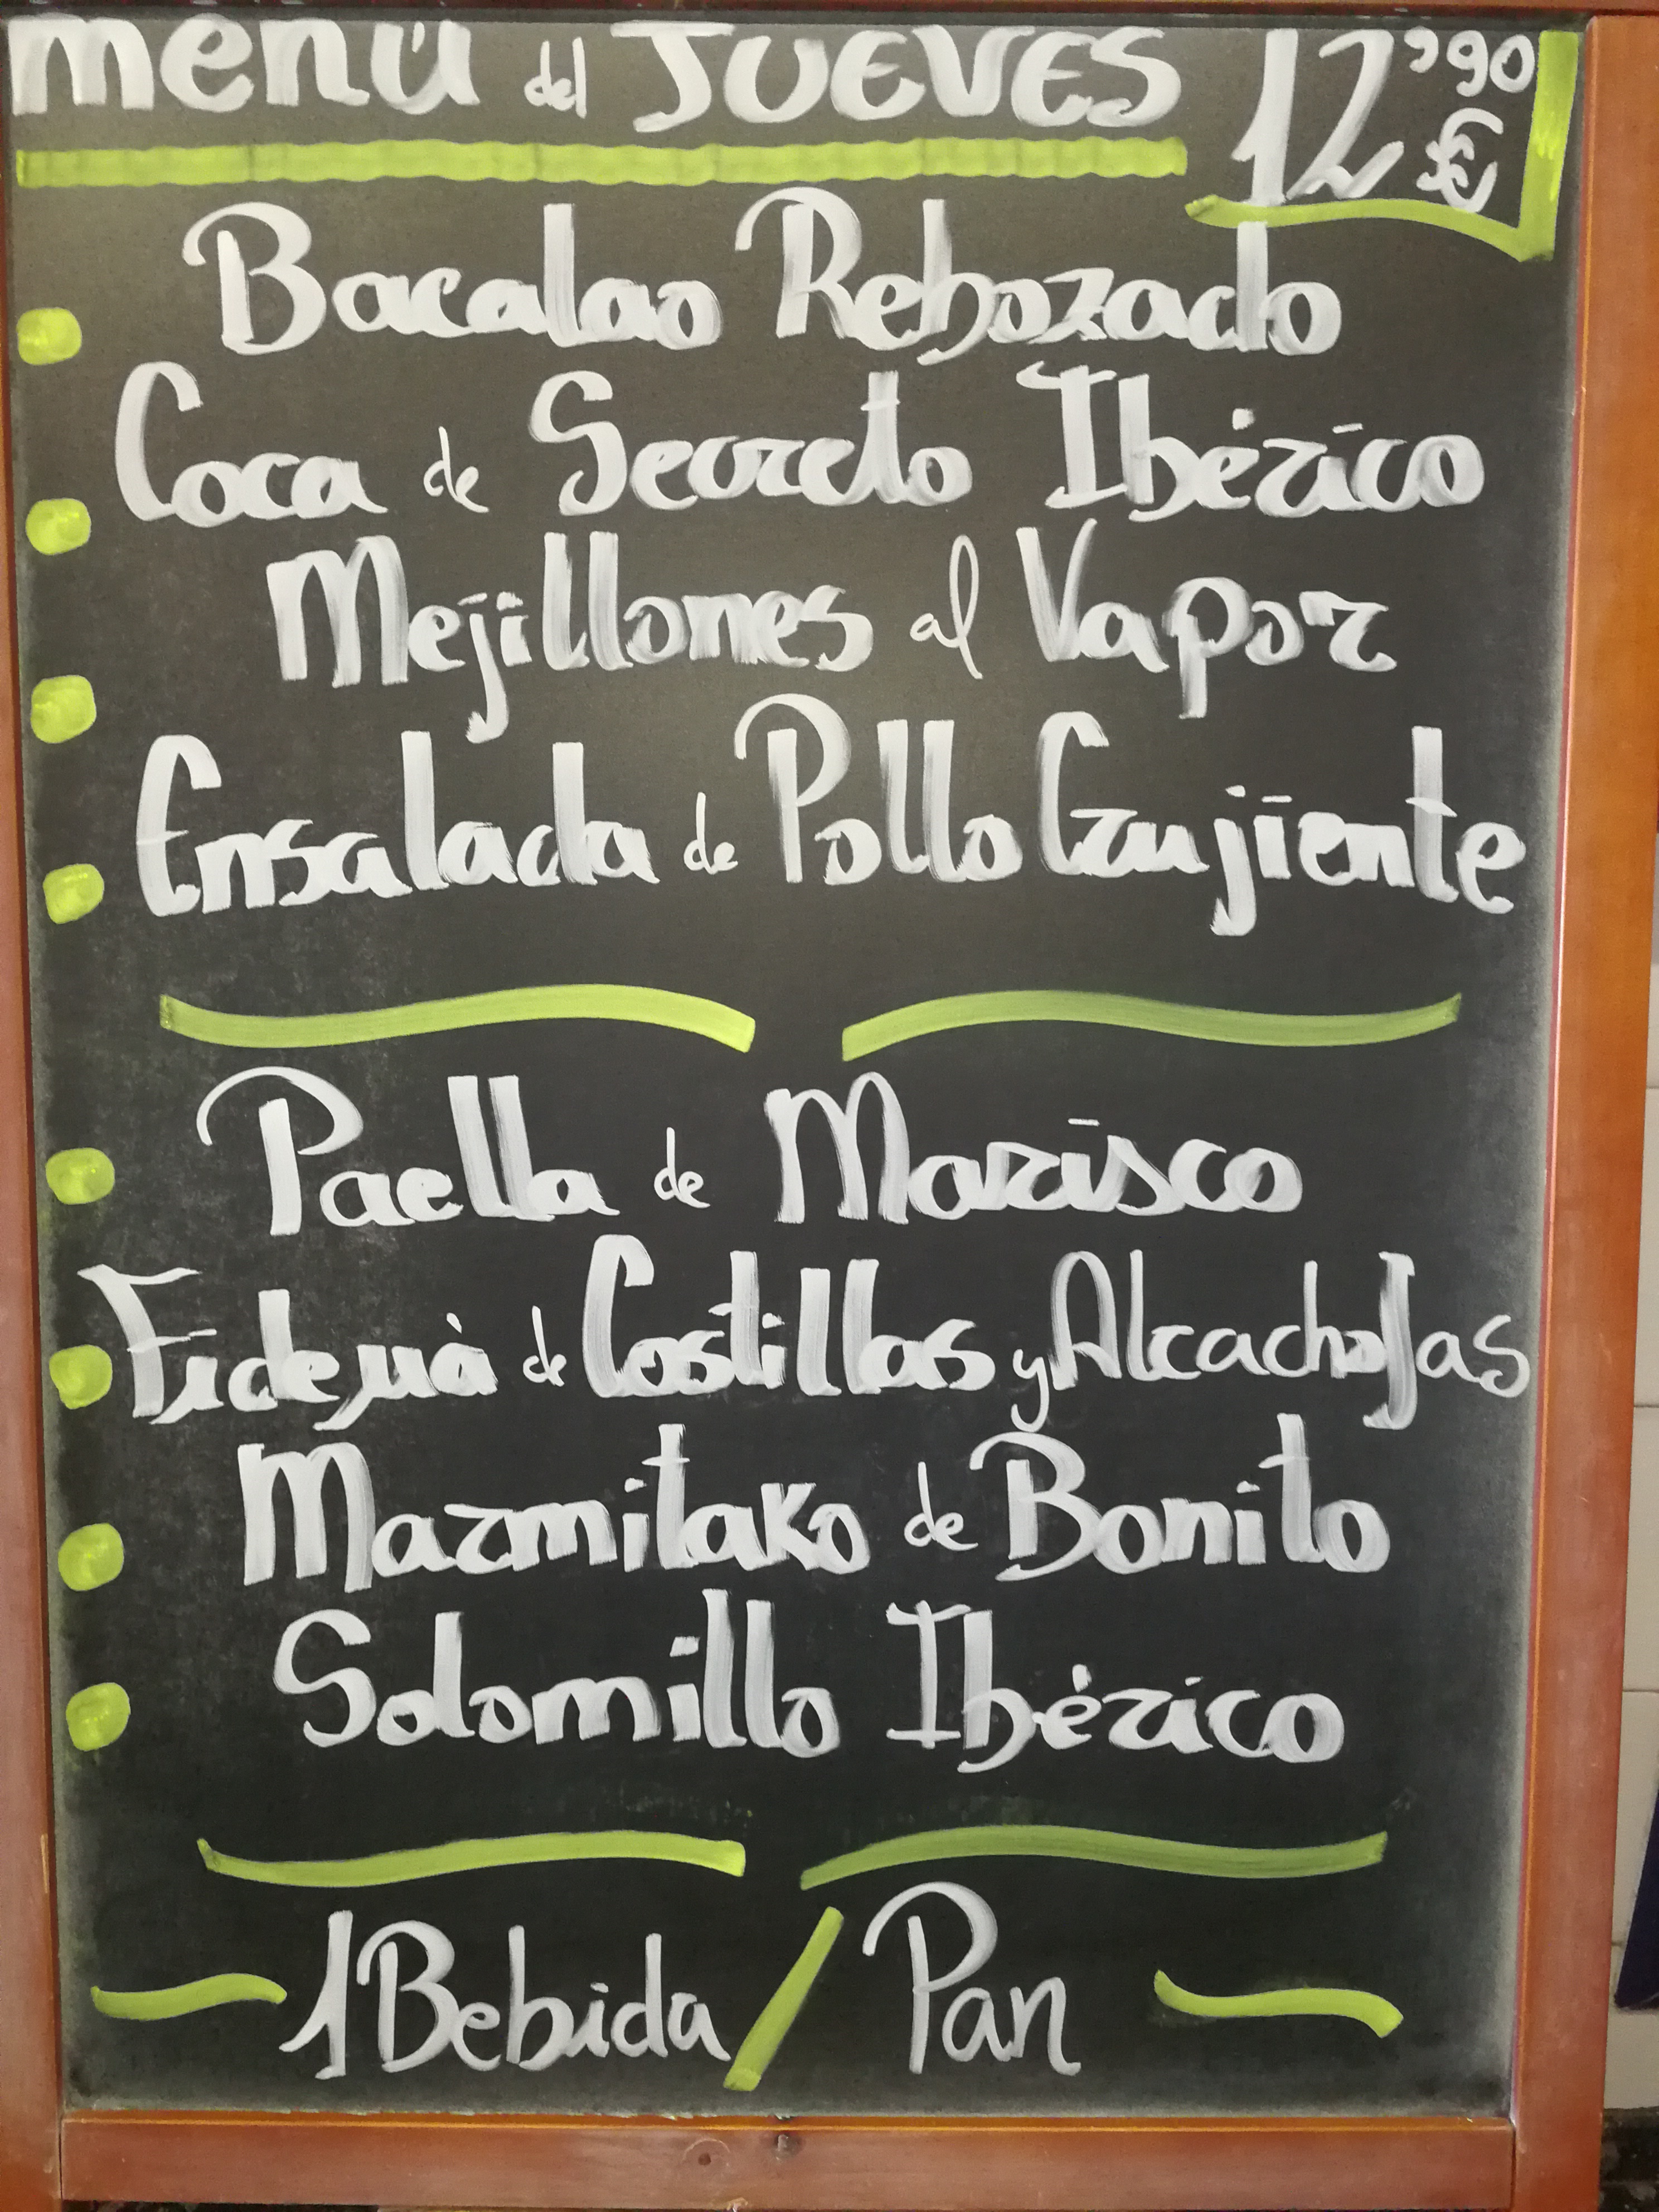 menú del JUEVES 12'90 €
Bacalao Rebozado
Coca de Secreto Ibérico
Mejillones al Vapor
Ensalada de Pollo Crujiente
Paella de Marisco
Fideuà de Costillas y Alcachofas
Marmitako de Bonito
Solomillo Ibérico
1 Bebida / Pan